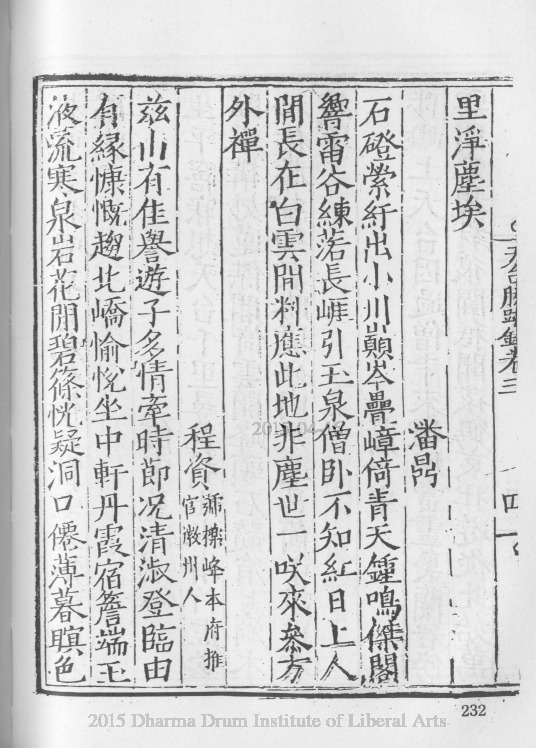 里淨塵埃
潘鼎
石磴縈紆出小川巔岑疊嶂倚青天鐘鳴傑閣
響雷谷練落長崕引玉泉僧卧不知紅日上人
閒長在白雲間料應此地非塵世一咲來叅方
外禪
程資 號標峰本府推
官徽州人
兹山有佳譽遊子多情牽時節况清淑登臨由
有緣慷慨趨北嶠愉悅坐中軒丹霞宿簷端玉
液流寒泉岩花開碧篠恍疑洞口僊薄暮瞑色
天台勝蹟錄卷三
232
2015 Dharma Drum Institute of Liberal Arts